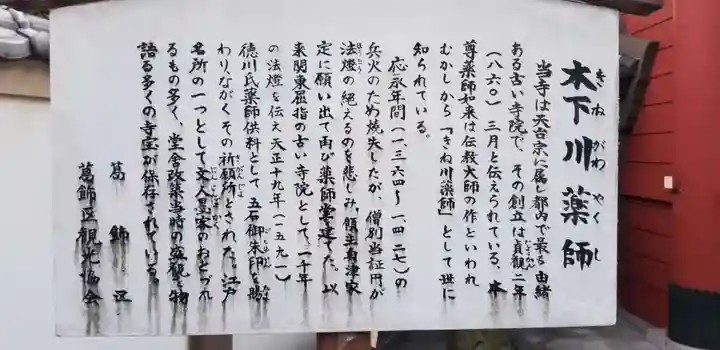 木下川薬師
きねがわやくし
当寺は天台宗に属し都内で最る由緒
ある古い寺院で、その創立は貞観二年
じょうがん
(八六〇)三月と伝えられている、本
尊薬師如来は伝教大師の作といわれ
むかしから「きね川薬師」として世に
知られている。
応永年間(一、三六四〜一四二七)の
兵火のため焼失したが、僧別当証円が
法燈の絶えるのを悲しみ、領主
定に願い出て再び薬師堂建てた。以
来関東屈指の古い寺院として、一千年
の法燈を伝え天正十九年(一五九一)
徳川氏薬師供料として五石御朱印を賜
わりながくその祈願所とされた。江戸
名所の一つとして文人墨客のおとづれ
るもの多く、堂舎改築当時の盛観を物
語る多くの寺宝が保存されている。
葛飾区
葛飾区観光協会